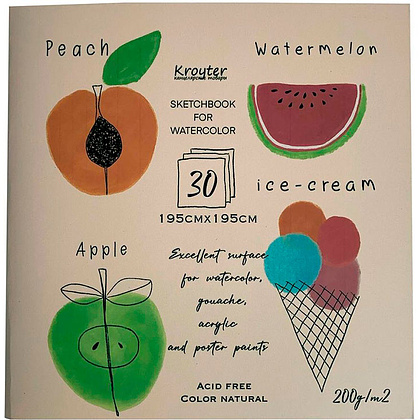 Peach
Watermelon
Kroyter
канцелярские товары
SKETCHBOOK
FOR
WATERCOLOR
30
195CMX195CM
ice-cream
Apple
Excellent surface
for watercolor,
gouache,
acrylic
and poster paints
ACID FREE
COLOR NATURAL
200g/m2